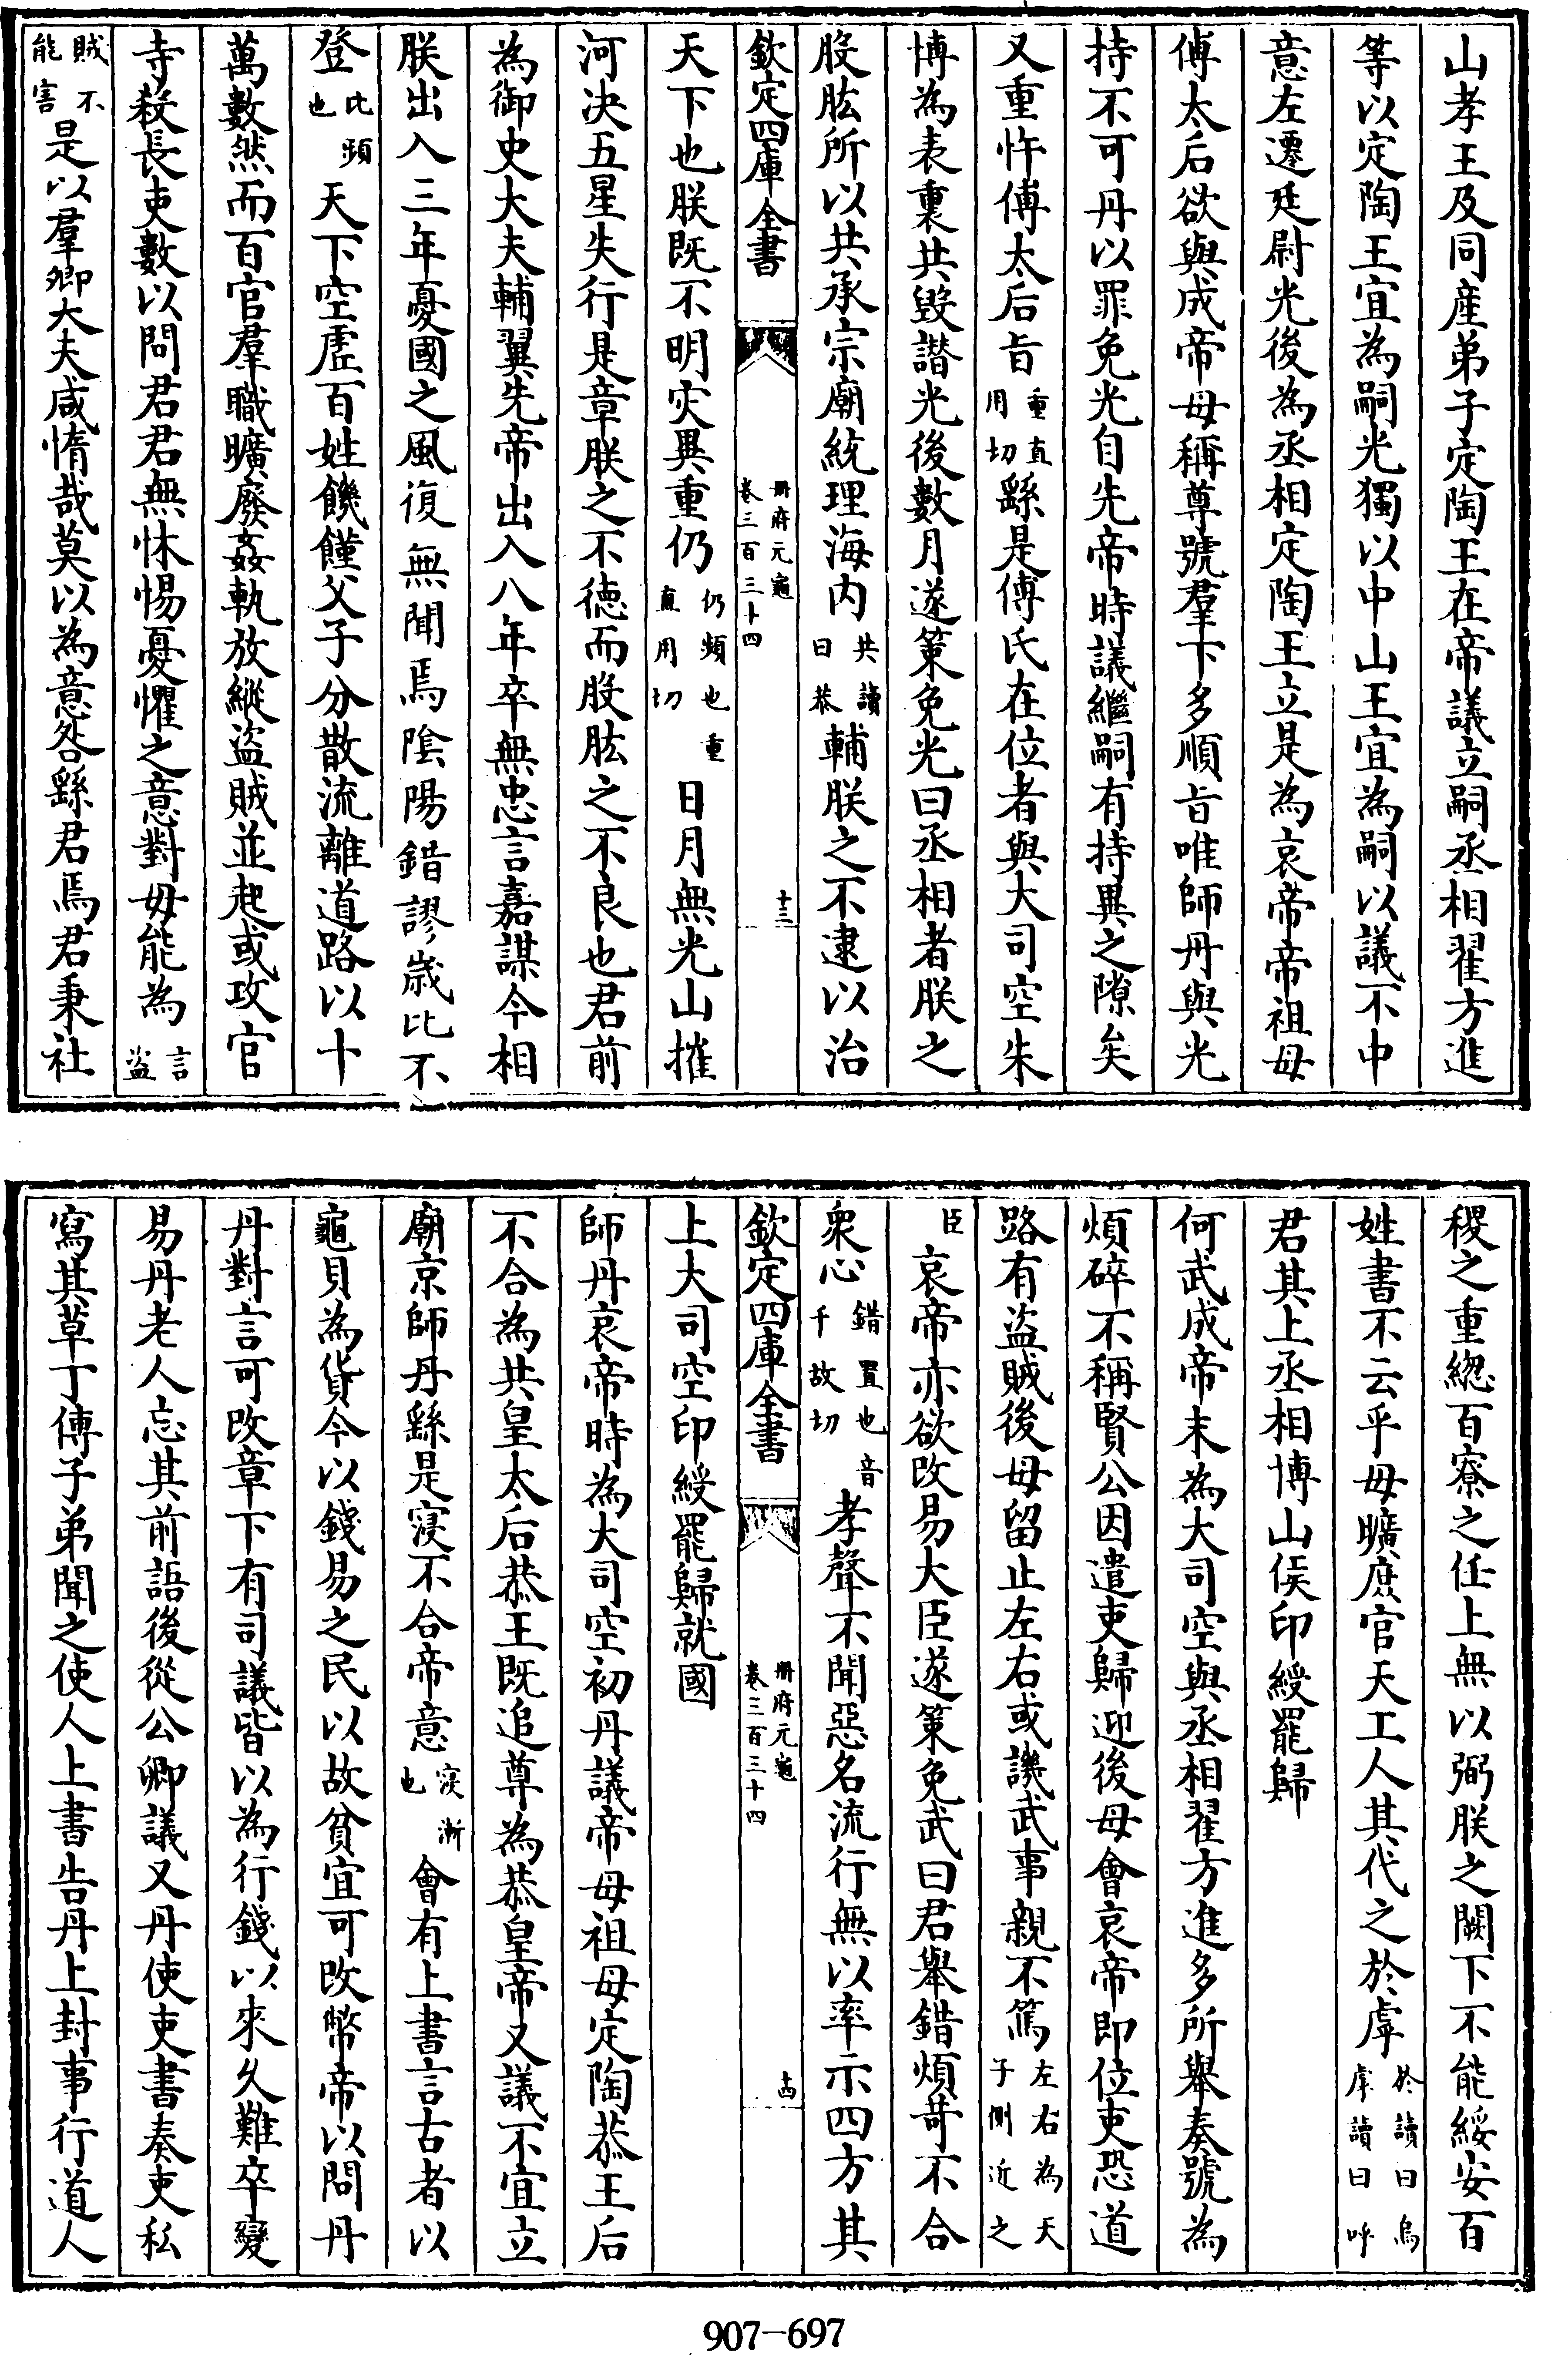 山孝王及同産弟子定陶王在帝議立嗣丞相翟方進
等以定陶王宜為嗣光獨以中山王宜為嗣以議不中
意左遷廷尉光後為丞相定陶王立是為哀帝帝祖母
傅太后欲與成帝母稱尊號羣下多順㫖唯師丹與光
持不可丹以罪免光自先帝時議繼嗣有持異之隙矣
又重忤傅太后㫖重直用切繇是傅氏在位者與大司空朱
博為表裏共毁譖光後數月遂䇿免光曰丞相者朕之
股肱所以共承宗廟統理海内共讀曰恭輔朕之不逮以治
欽定四庫全書 冊府元龜卷三百三十四 十三
天下也朕既不明灾異重仍仍頻也重直用切日月無光山摧
河決五星失行是章朕之不徳而股肱之不良也君前
為御史大夫輔翼先帝出入八年卒無忠言嘉謀今相
朕出入三年憂國之風復無聞焉陰陽錯謬歲比不
登比頻也天下空虚百姓饑饉父子分散流離道路以十
萬數然而百官羣職曠廢姦軌放縱盗賊並起或攻官
寺殺長吏數以問君君無怵惕憂懼之意對毋能為言盗
賊不能害是以羣卿大夫咸惰哉莫以為意咎繇君焉君秉社
稷之重緫百寮之任上無以弼朕之闕下不能綏安百
姓書不云乎毋曠庶官天工人其代之於虖於讀曰烏虖讀曰呼
君其上丞相博山侯印綬罷歸
何武成帝末為大司空與丞相翟方進多所舉奏號為
煩碎不稱賢公因遣吏歸迎後母會哀帝即位吏恐道
路有盗賊後母留止左右或譏武事親不篤左右為天子側近之
臣哀帝亦欲改易大臣遂䇿免武曰君舉錯煩苛不合
衆心錯置也音千故切孝聲不聞惡名流行無以率示四方其
欽定四庫全書 冊府元龜卷三百三十四 十四
上大司空印綬罷歸就國
師丹哀帝時為大司空初丹議帝母祖母定陶恭王后
不合為共皇太后恭王既追尊為恭皇帝又議不宜立
廟京師丹繇是寖不合帝意寖漸也會有上書言古者以
龜貝為貨今以錢易之民以故貧宜可改幣帝以問丹
丹對言可改章下有司議皆以為行錢以來久難卒變
易丹老人忘其前語後從公卿議又丹使吏書奏吏私
寫其草丁傅子弟聞之使人上書告丹上封事行道人
907-697